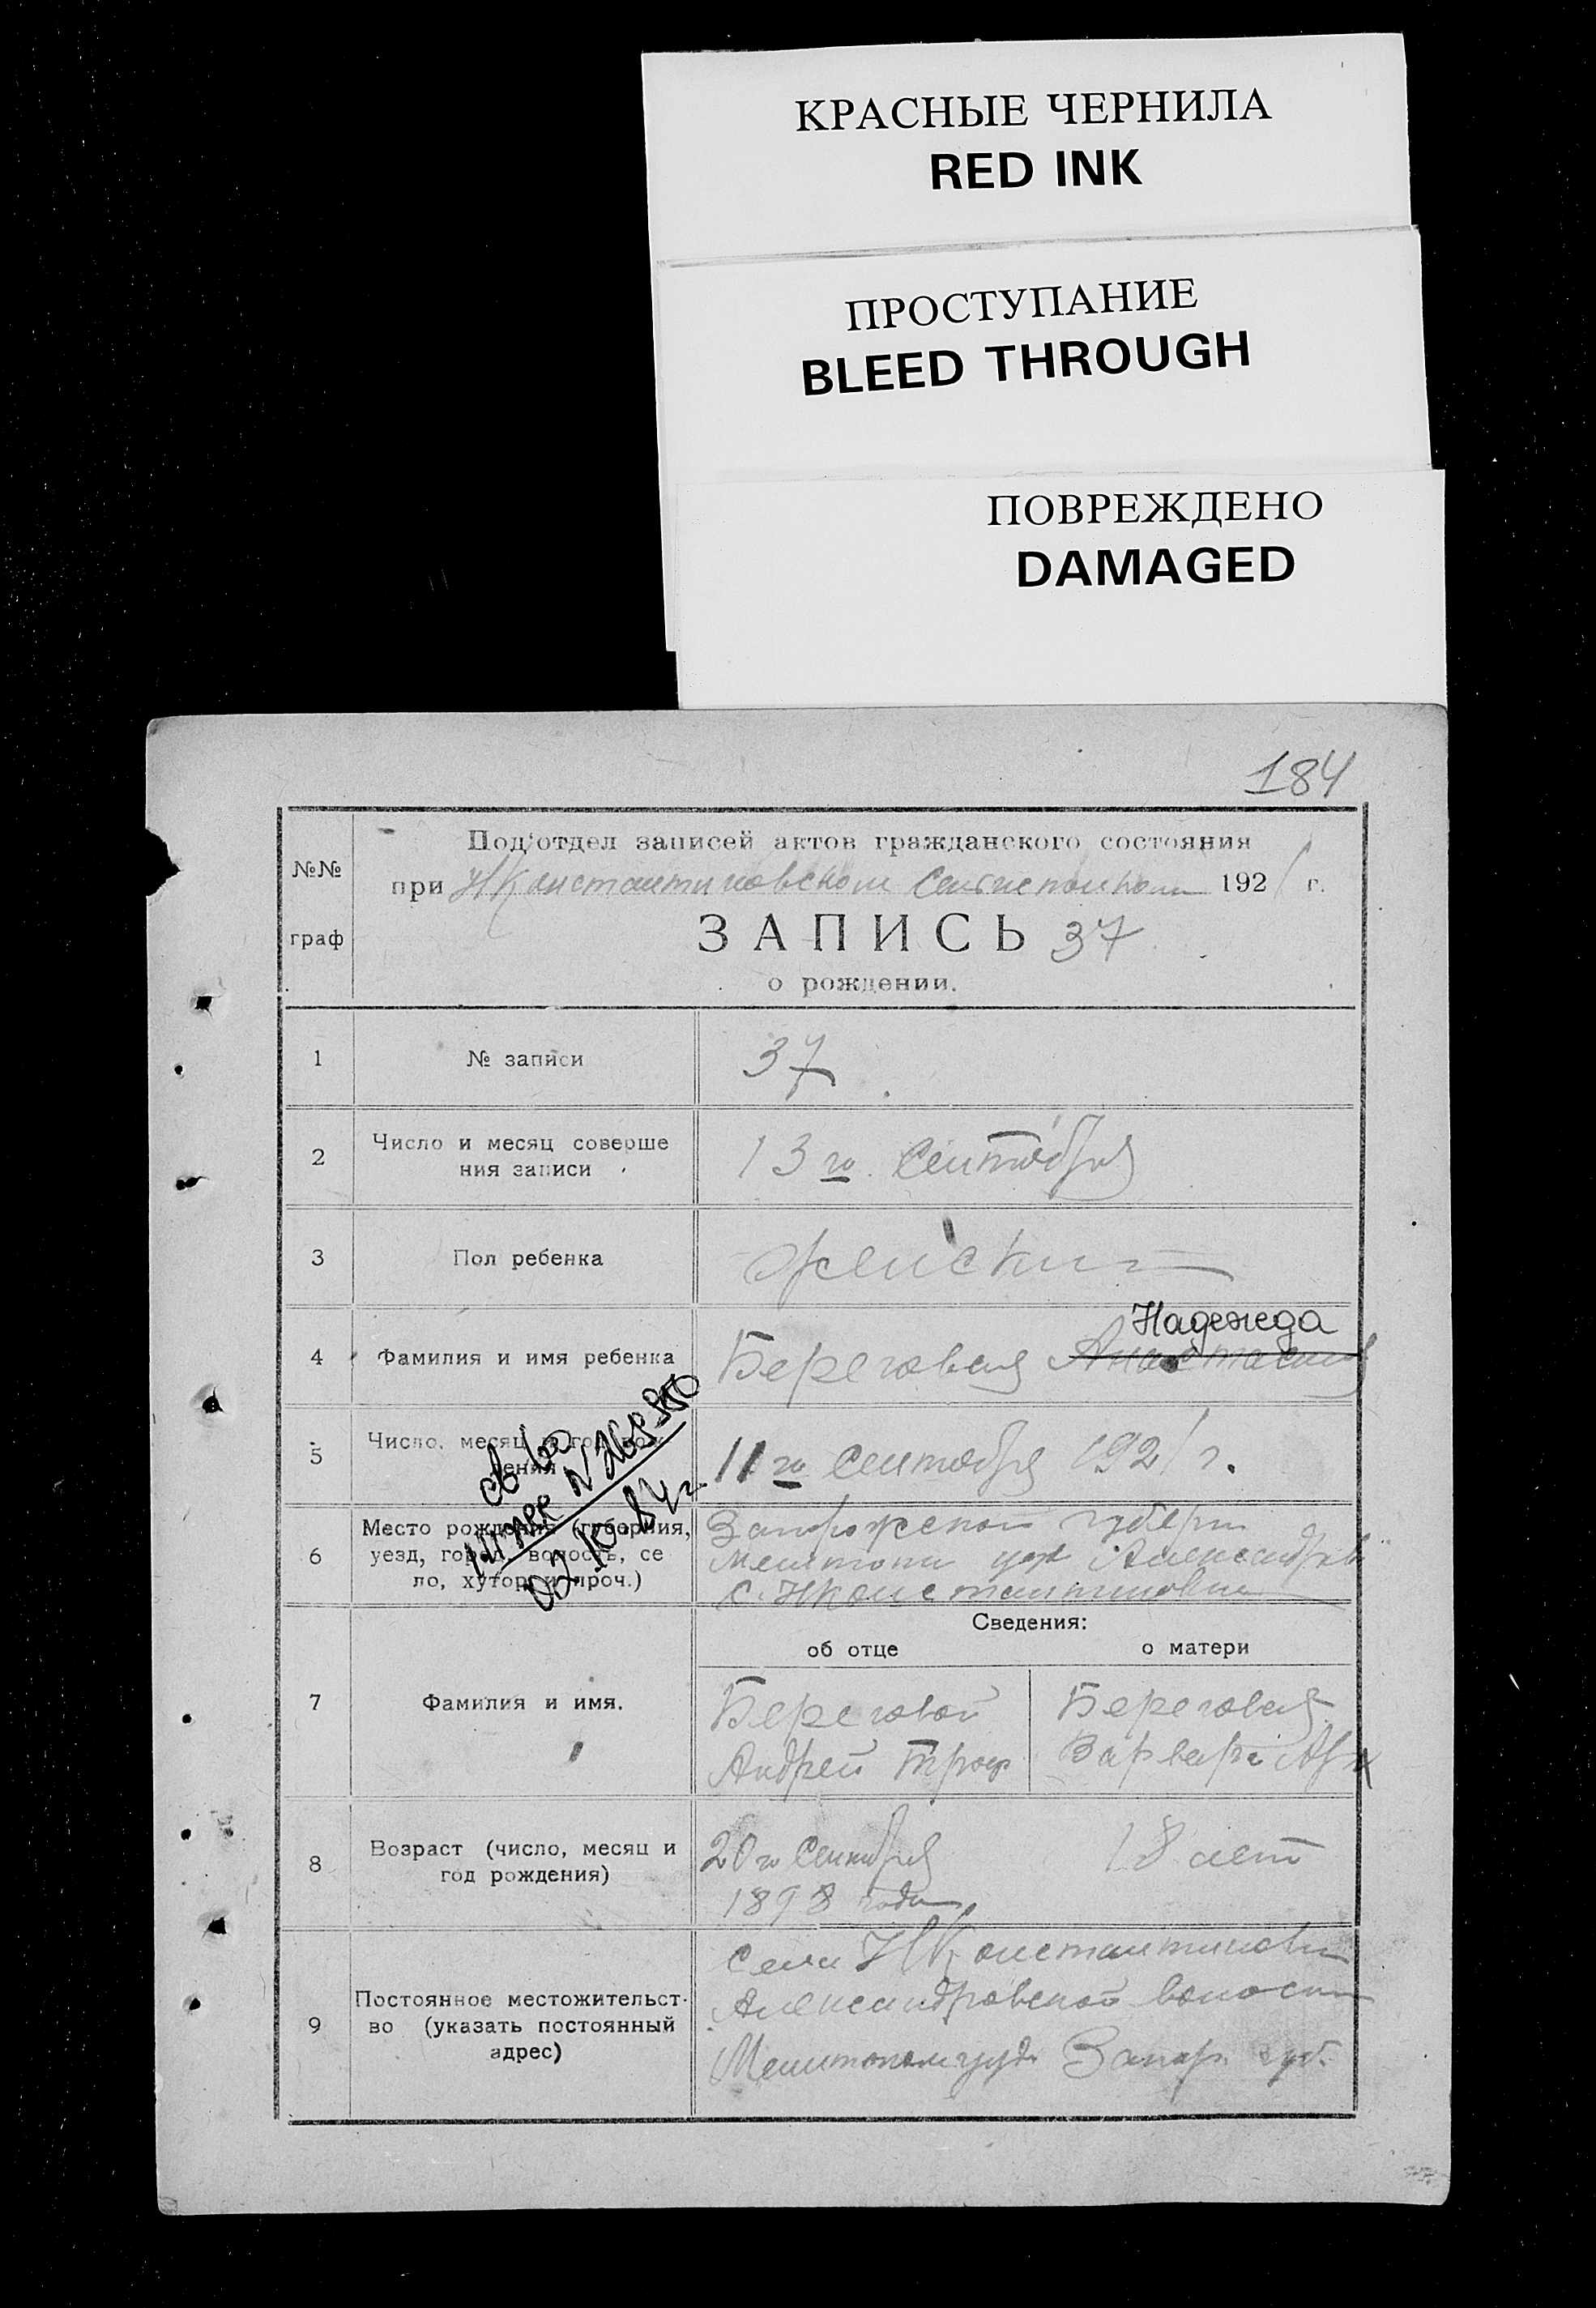 КРАСНЫЕ ЧЕРНИЛА
RED INK
ПРОСТУПАНИЕ
BLEED THROUGH
ПОВРЕЖДЕНО
DAMAGED
184
№№ граф
Под'отдел записей актов гражданского состояния
при НКонстантиновском Сельисполкоме 1921 г.
ЗАПИСЬ 37
о рождении.
1 № записи 37
2 Число и месяц соверше
ния записи 13го Сентября
3 Пол ребенка женский
Надежда
4 Фамилия и имя ребенка Береговая Анастасия
5 Число, месяц и год рож
дения 11го Сентября 1921 г.
св во
02.10.84г.
6 Место рождения (губерния,
уезд, город, волость, се
ло, хутор и проч.)
Запорожской губерн
Мелитопол уезд Александров
с. НКонстантиновки
Сведения:
об отце о матери
7 Фамилия и имя.
Береговой Береговая
Андрей Троф Варвара
8 Возраст (число, месяц и
год рождения)
20го Сентября 18 лет
1898 года
9 Постоянное местожительст-
во (указать постоянный
адрес)
Села НКонстантиновки
Александровской волости
Мелитопол уезд Запор. губ.